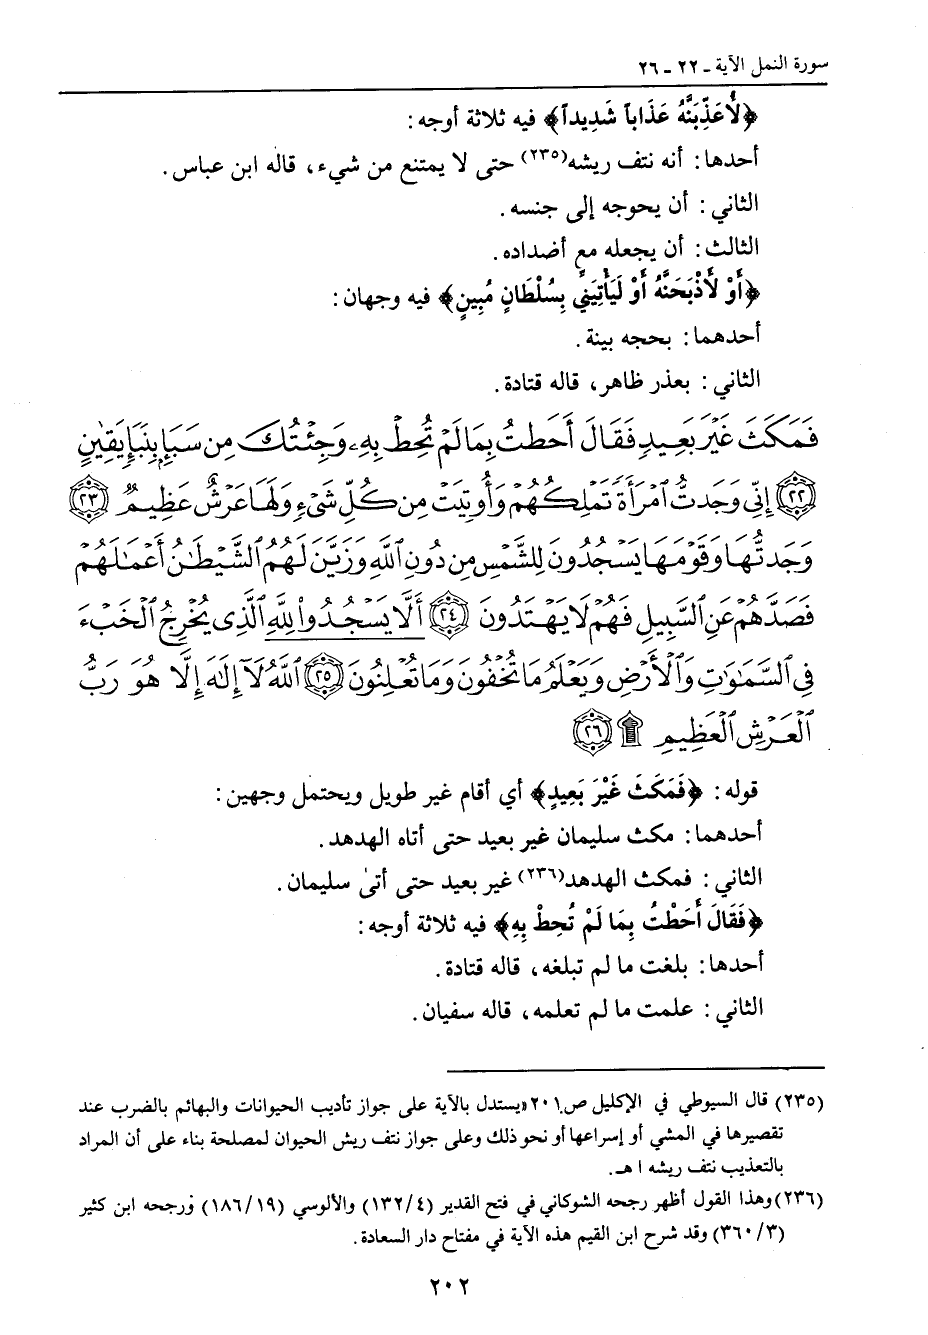 سورة النمل الآية ـ ٢٢ ـ ٢٦
﴿لَأُعَذِّبَنَّهُ عَذَاباً شَدِيداً﴾ فيه ثلاثة أوجه:
أحدها: أنه نتف ريشه(٢٣٥) حتى لا يمتنع من شيء، قاله ابن عباس.
الثاني: أن يحوجه إلى جنسه.
الثالث: أن يجعله مع أضداده.
﴿أَوْ لَأَذْبَحَنَّهُ أَوْ لَيَأْتِيَنِّي بِسُلْطَانٍ مُبِينٍ﴾ فيه وجهان:
أحدهما: بحجه بينة.
الثاني: بعذر ظاهر، قاله قتادة.
فَمَكَثَ غَيْرَ بَعِيدٍ فَقَالَ أَحَطتُ بِمَا لَمْ تُحِطْ بِهِۦ وَجِئْتُكَ مِن سَبَإٍۭ بِنَبَإٍ يَقِينٍ
﴿٢٢﴾ إِنِّى وَجَدتُّ ٱمْرَأَةً تَمْلِكُهُمْ وَأُوتِيَتْ مِن كُلِّ شَىْءٍ وَلَهَا عَرْشٌ عَظِيمٌ ﴿٢٣﴾
وَجَدتُّهَا وَقَوْمَهَا يَسْجُدُونَ لِلشَّمْسِ مِن دُونِ ٱللَّهِ وَزَيَّنَ لَهُمُ ٱلشَّيْطَٰنُ أَعْمَٰلَهُمْ
فَصَدَّهُمْ عَنِ ٱلسَّبِيلِ فَهُمْ لَا يَهْتَدُونَ ﴿٢٤﴾ أَلَّا يَسْجُدُوا۟ لِلَّهِ ٱلَّذِى يُخْرِجُ ٱلْخَبْءَ
فِى ٱلسَّمَٰوَٰتِ وَٱلْأَرْضِ وَيَعْلَمُ مَا تُخْفُونَ وَمَا تُعْلِنُونَ ﴿٢٥﴾ ٱللَّهُ لَآ إِلَٰهَ إِلَّا هُوَ رَبُّ
ٱلْعَرْشِ ٱلْعَظِيمِ ۩ ﴿٢٦﴾
قوله: ﴿فَمَكَثَ غَيْرَ بَعِيدٍ﴾ أي أقام غير طويل ويحتمل وجهين:
أحدهما: مكث سليمان غير بعيد حتى أتاه الهدهد.
الثاني: فمكث الهدهد(٢٣٦) غير بعيد حتى أتىٰ سليمان.
﴿فَقَالَ أَحَطْتُ بِمَا لَمْ تُحِطْ بِهِ﴾ فيه ثلاثة أوجه:
أحدها: بلغت ما لم تبلغه، قاله قتادة.
الثاني: علمت ما لم تعلمه، قاله سفيان.
(٢٣٥) قال السيوطي في الإكليل ص ٢٠١ «يستدل بالآية على جواز تأديب الحيوانات والبهائم بالضرب عند
تقصيرها في المشي أو إسراعها أو نحو ذلك وعلى جواز نتف ريش الحيوان لمصلحة بناء على أن المراد
بالتعذيب نتف ريشه ا هـ.
(٢٣٦) وهذا القول أظهر رجحه الشوكاني في فتح القدير (١٣٢/٤) والألوسي (١٨٦/١٩) ورجحه ابن كثير
(٣٦٠/٣) وقد شرح ابن القيم هذه الآية في مفتاح دار السعادة.
٢٠٢